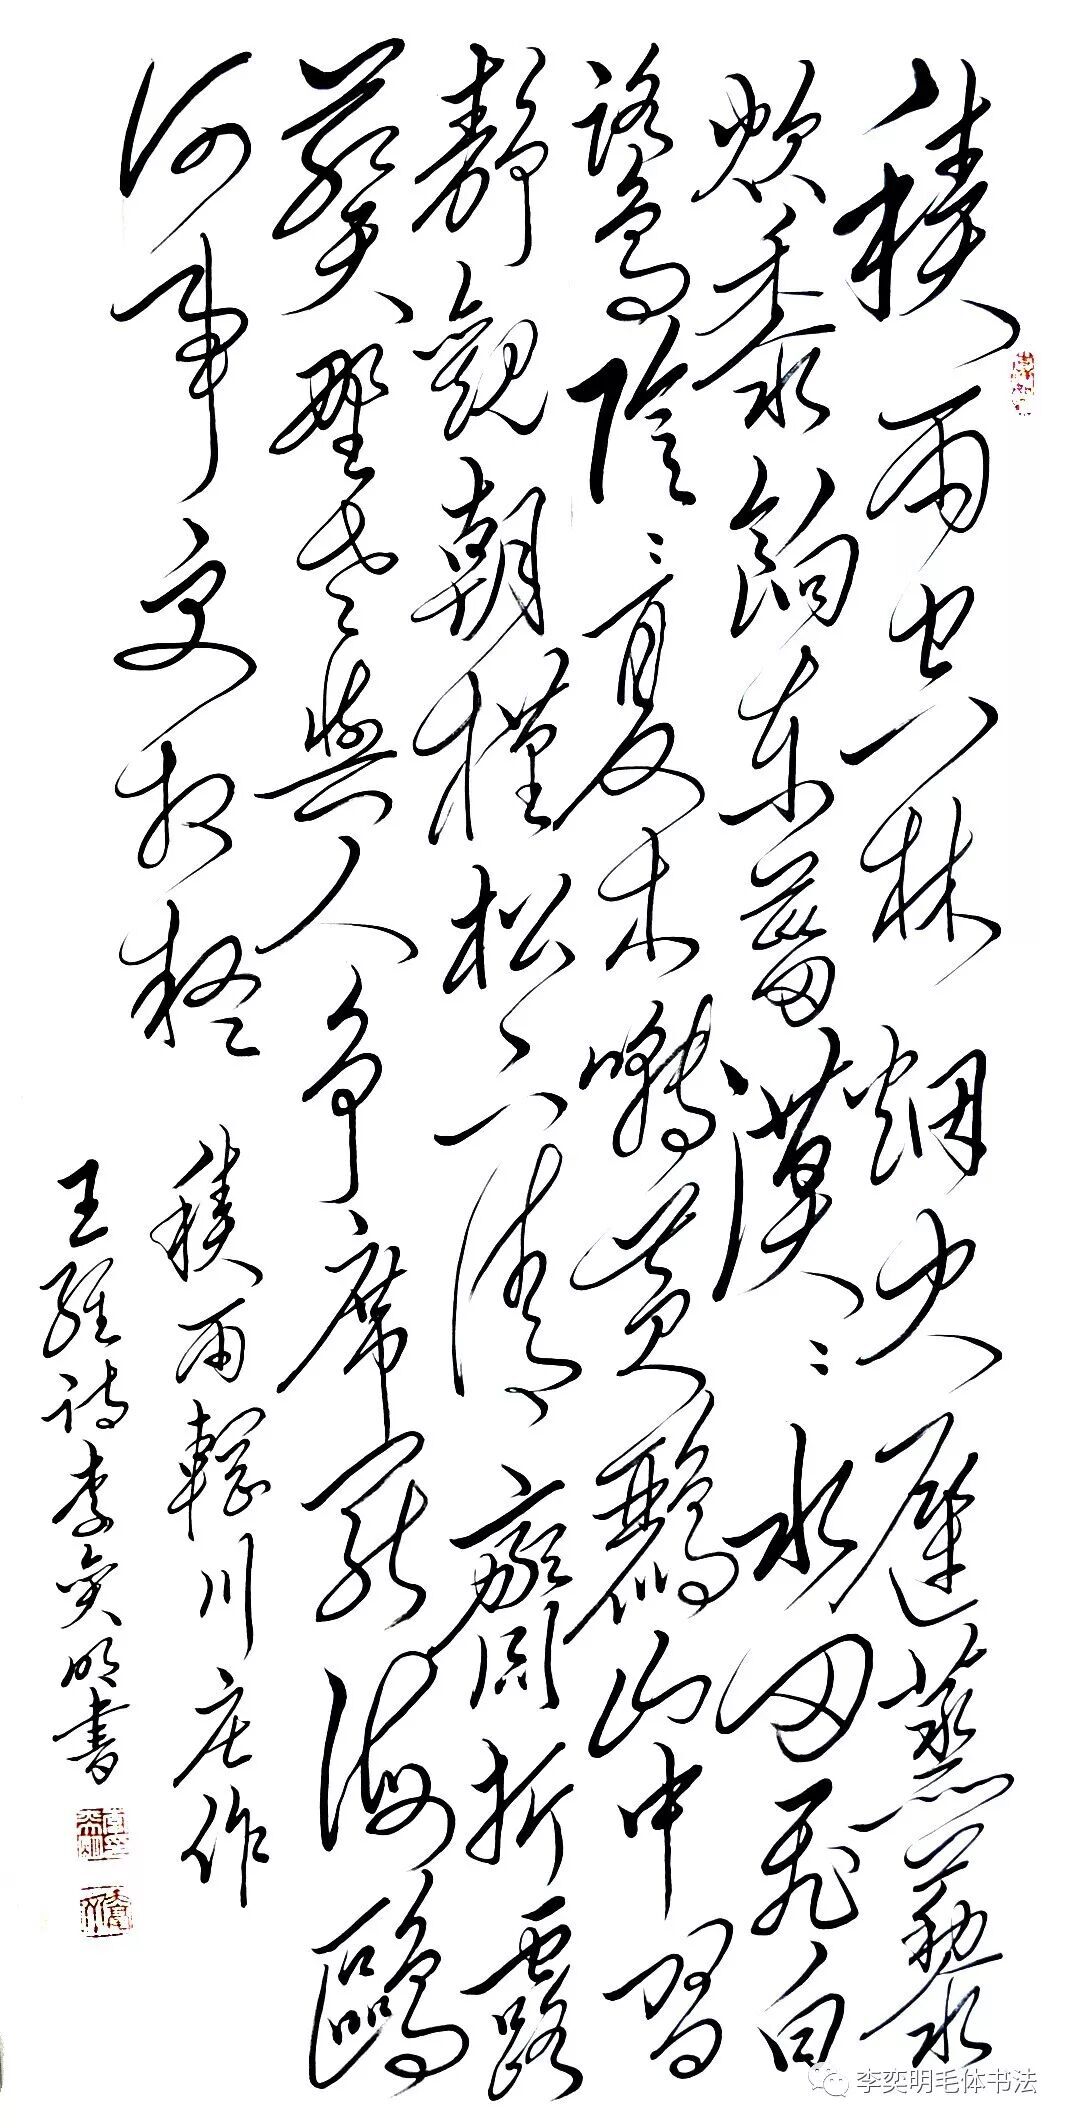 積雨空林烟火遲蒸藜
炊黍餉东菑漠〻水田飛白
鷺陰〻夏木囀黃鸝山中習
靜觀朝槿松下清齋折露
葵野老與人争席罷海鷗
何事更相疑
積雨輞川庄作
王維诗李奕明書
李奕明毛体书法